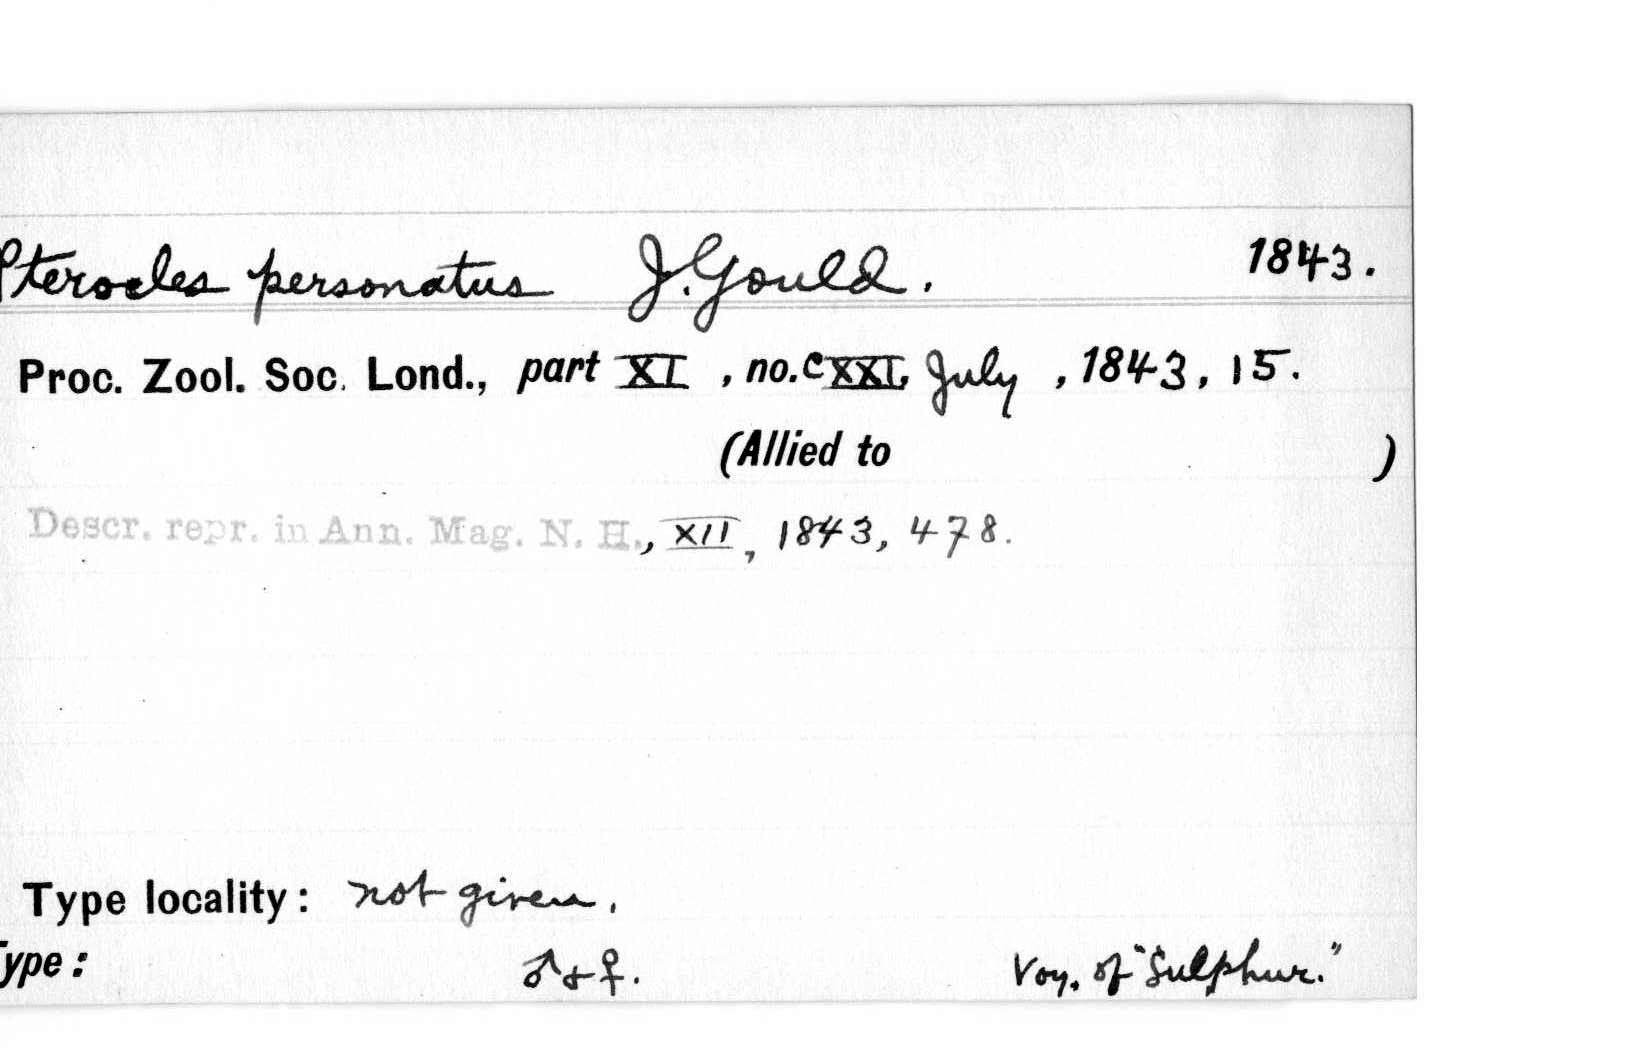 Pterocles personatus J. Gould. 1843.
Proc. Zool. Soc. Lond., part XI, no. CXXI, July, 1843, 15.
(Allied to )
Descr. repr. in Ann. Mag. N. H., XII, 1843, 478.
Type locality: not given.
Type: ♂ & ♀. Voy. of "Sulphur."